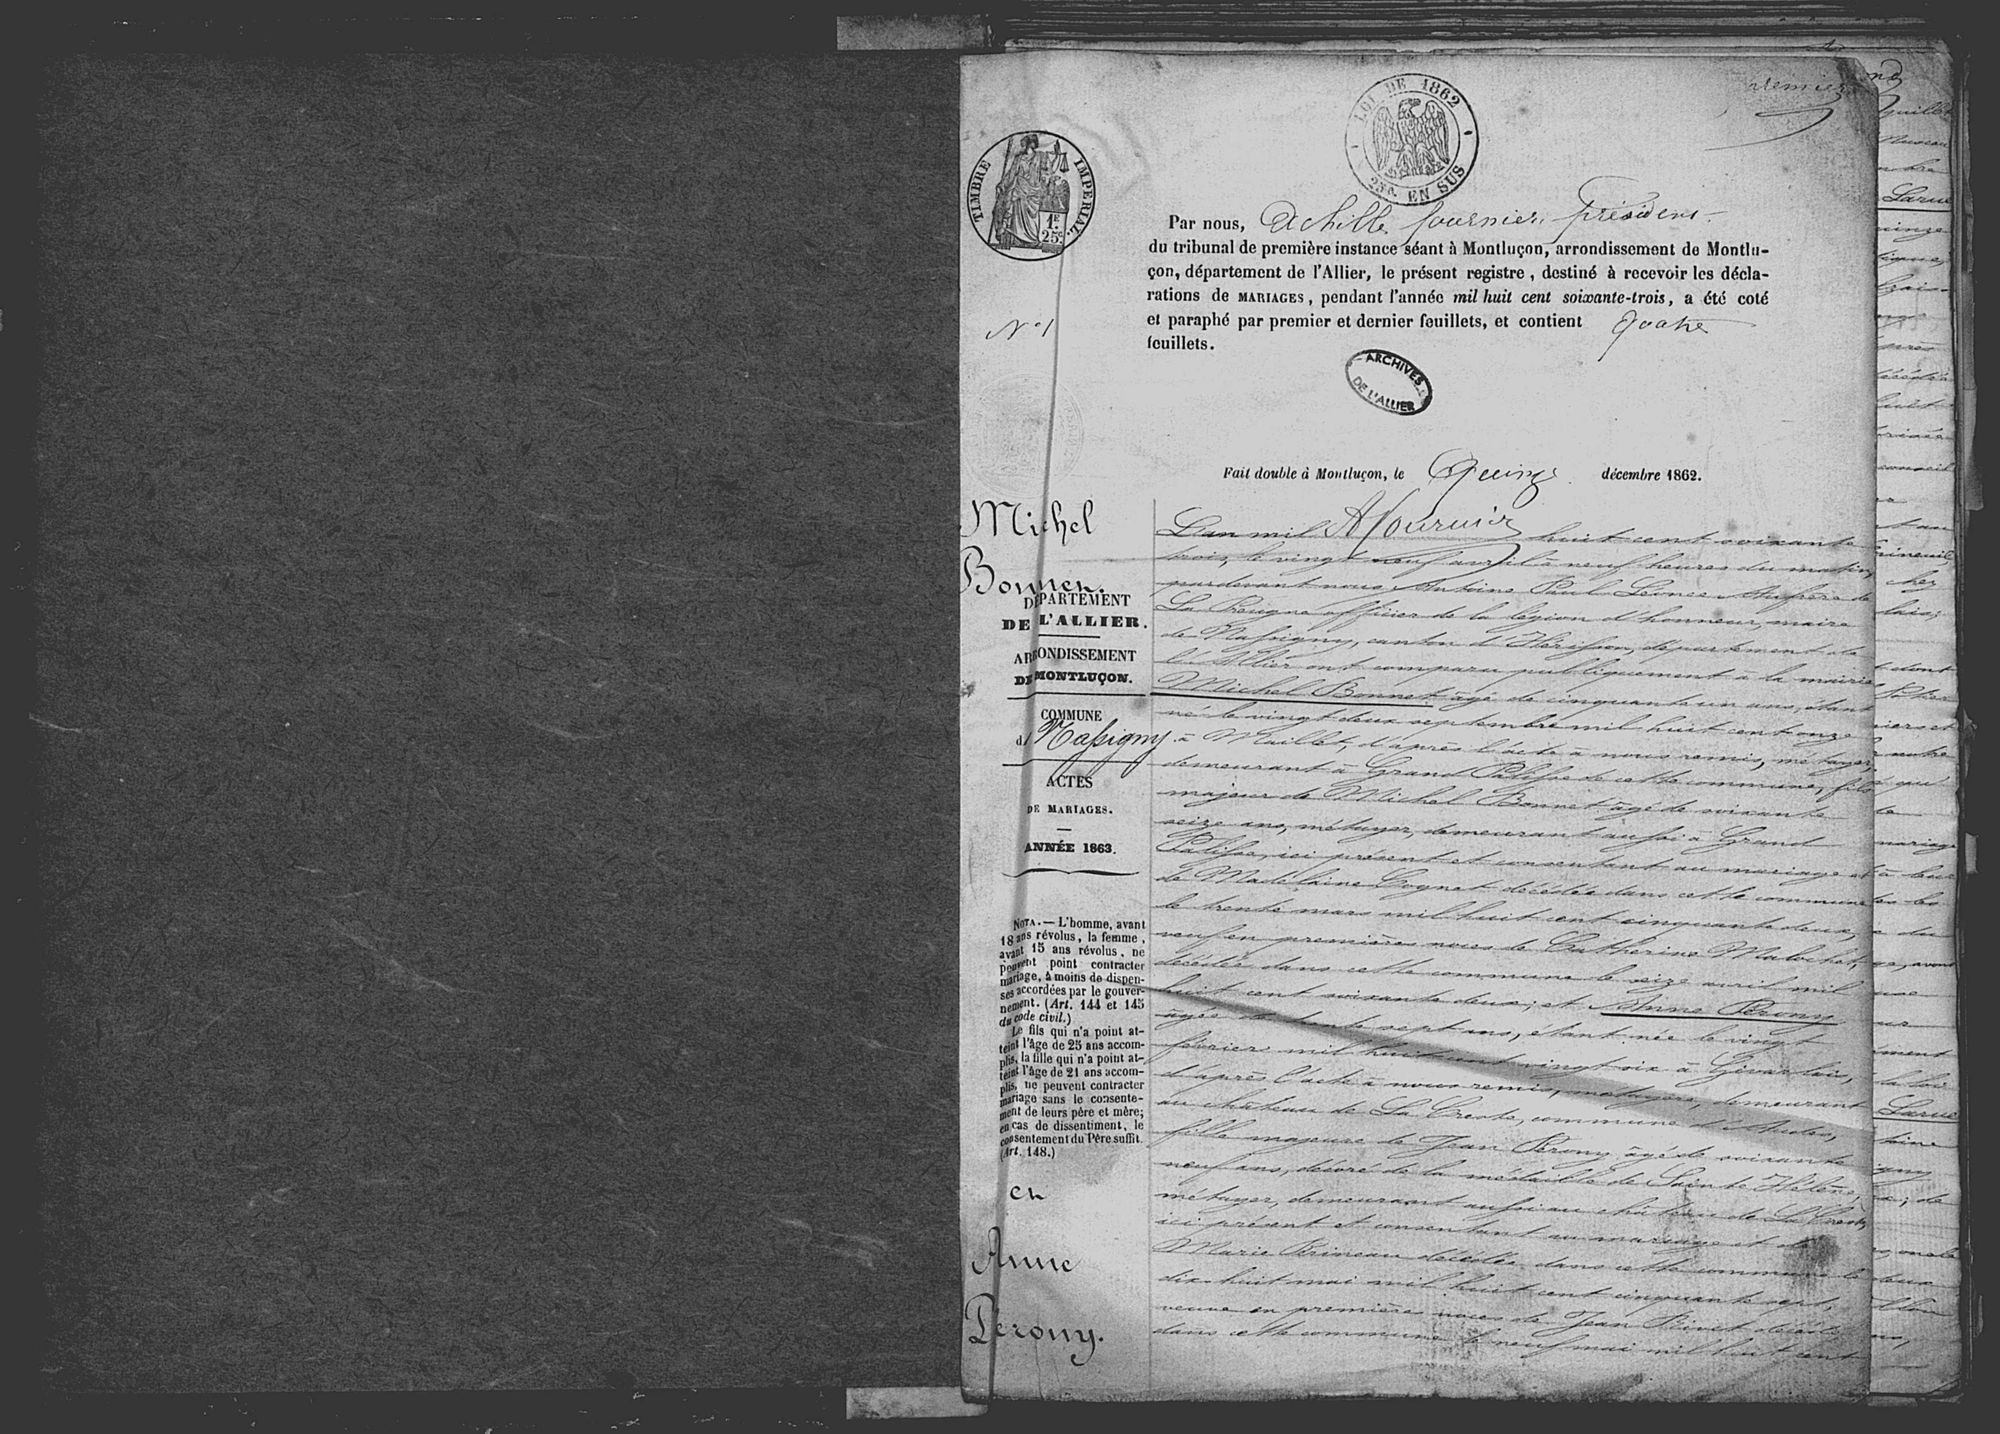 premier
LOI DE 1862
25c. EN SUS
TIMBRE IMPERIAL.
1F.
25c
Par nous, Achille fournier Président
du tribunal de première instance séant à Montluçon, arrondissement de Montlu-
çon, département de l'Allier, le présent registre, destiné à recevoir les décla-
rations de MARIAGES, pendant l'année mil huit cent soixante-trois, a été coté
et paraphé par premier et dernier feuillets, et contient quatre
feuillets.
N° 1
ARCHIVES
DE L'ALLIER
Fait double à Montluçon, le Quinze décembre 1862.
AFournier
Michel
Bonnet.
DÉPARTEMENT
DE L'ALLIER.
ARRONDISSEMENT
DE MONTLUÇON.
COMMUNE
d Nassigny
ACTES
DE MARIAGES.
ANNÉE 1863.
NOTA. — L'homme, avant
18 ans révolus, la femme,
avant 15 ans révolus, ne
peuvent point contracter
mariage, à moins de dispen-
ses accordées par le gouver-
nement. (Art. 144 et 145
du code civil.)
Le fils qui n'a point at-
teint l'âge de 25 ans accom-
plis, la fille qui n'a point at-
teint l'âge de 21 ans accom-
plis, ne peuvent contracter
mariage sans le consente-
ment de leurs père et mère;
en cas de dissentiment, le
consentement du Père suffit.
(Art. 148.)
et
Anne
Perony.
L'an mil huit cent soixante
trois, le vingt neuf avril à neuf heures du matin,
pardevant nous Antoine Paul Léonce de
La officier de la légion d'honneur, maire
de Nassigny, canton d'Hérisson, département de
l'Allier ont comparu publiquement à la mairie
Michel Bonnet âgé de cinquante un ans, étant
né le vingt deux septembre mil huit cent onze
à Maillet, d'après l'acte à nous remis, métayer,
demeurant à Grand Palisse de cette commune, fils
majeur de Michel Bonnet âgé de soixante
seize ans, métayer, demeurant aussi à Grand
Palisse, ici présent et consentant au mariage et
de Madelaine Cognet décédée dans cette commune
le trente mars mil huit cent cinquante deux,
veuf en premières noces de Catherine Malochet,
décédée dans cette commune le seize avril mil
huit cent soixante deux; et Anne Perony
âgée de trente sept ans, étant née le vingt
février mil huit cent vingt six à Givarlais,
d'après l'acte à nous remis, métayère, demeurant
au château de La Creste, commune d'Audes,
fille majeure de Jean Perony âgé de soixante
neuf ans, décoré de la médaille de Sainte Hélène,
métayer, demeurant aussi au château de La Creste,
ici présent et consentant au mariage et de
Marie Perineau décédée dans cette commune le
dix huit mai mil huit cent cinquante sept,
veuve en premières noces de Jean décédé
dans cette commune le neuf mai mil huit cent